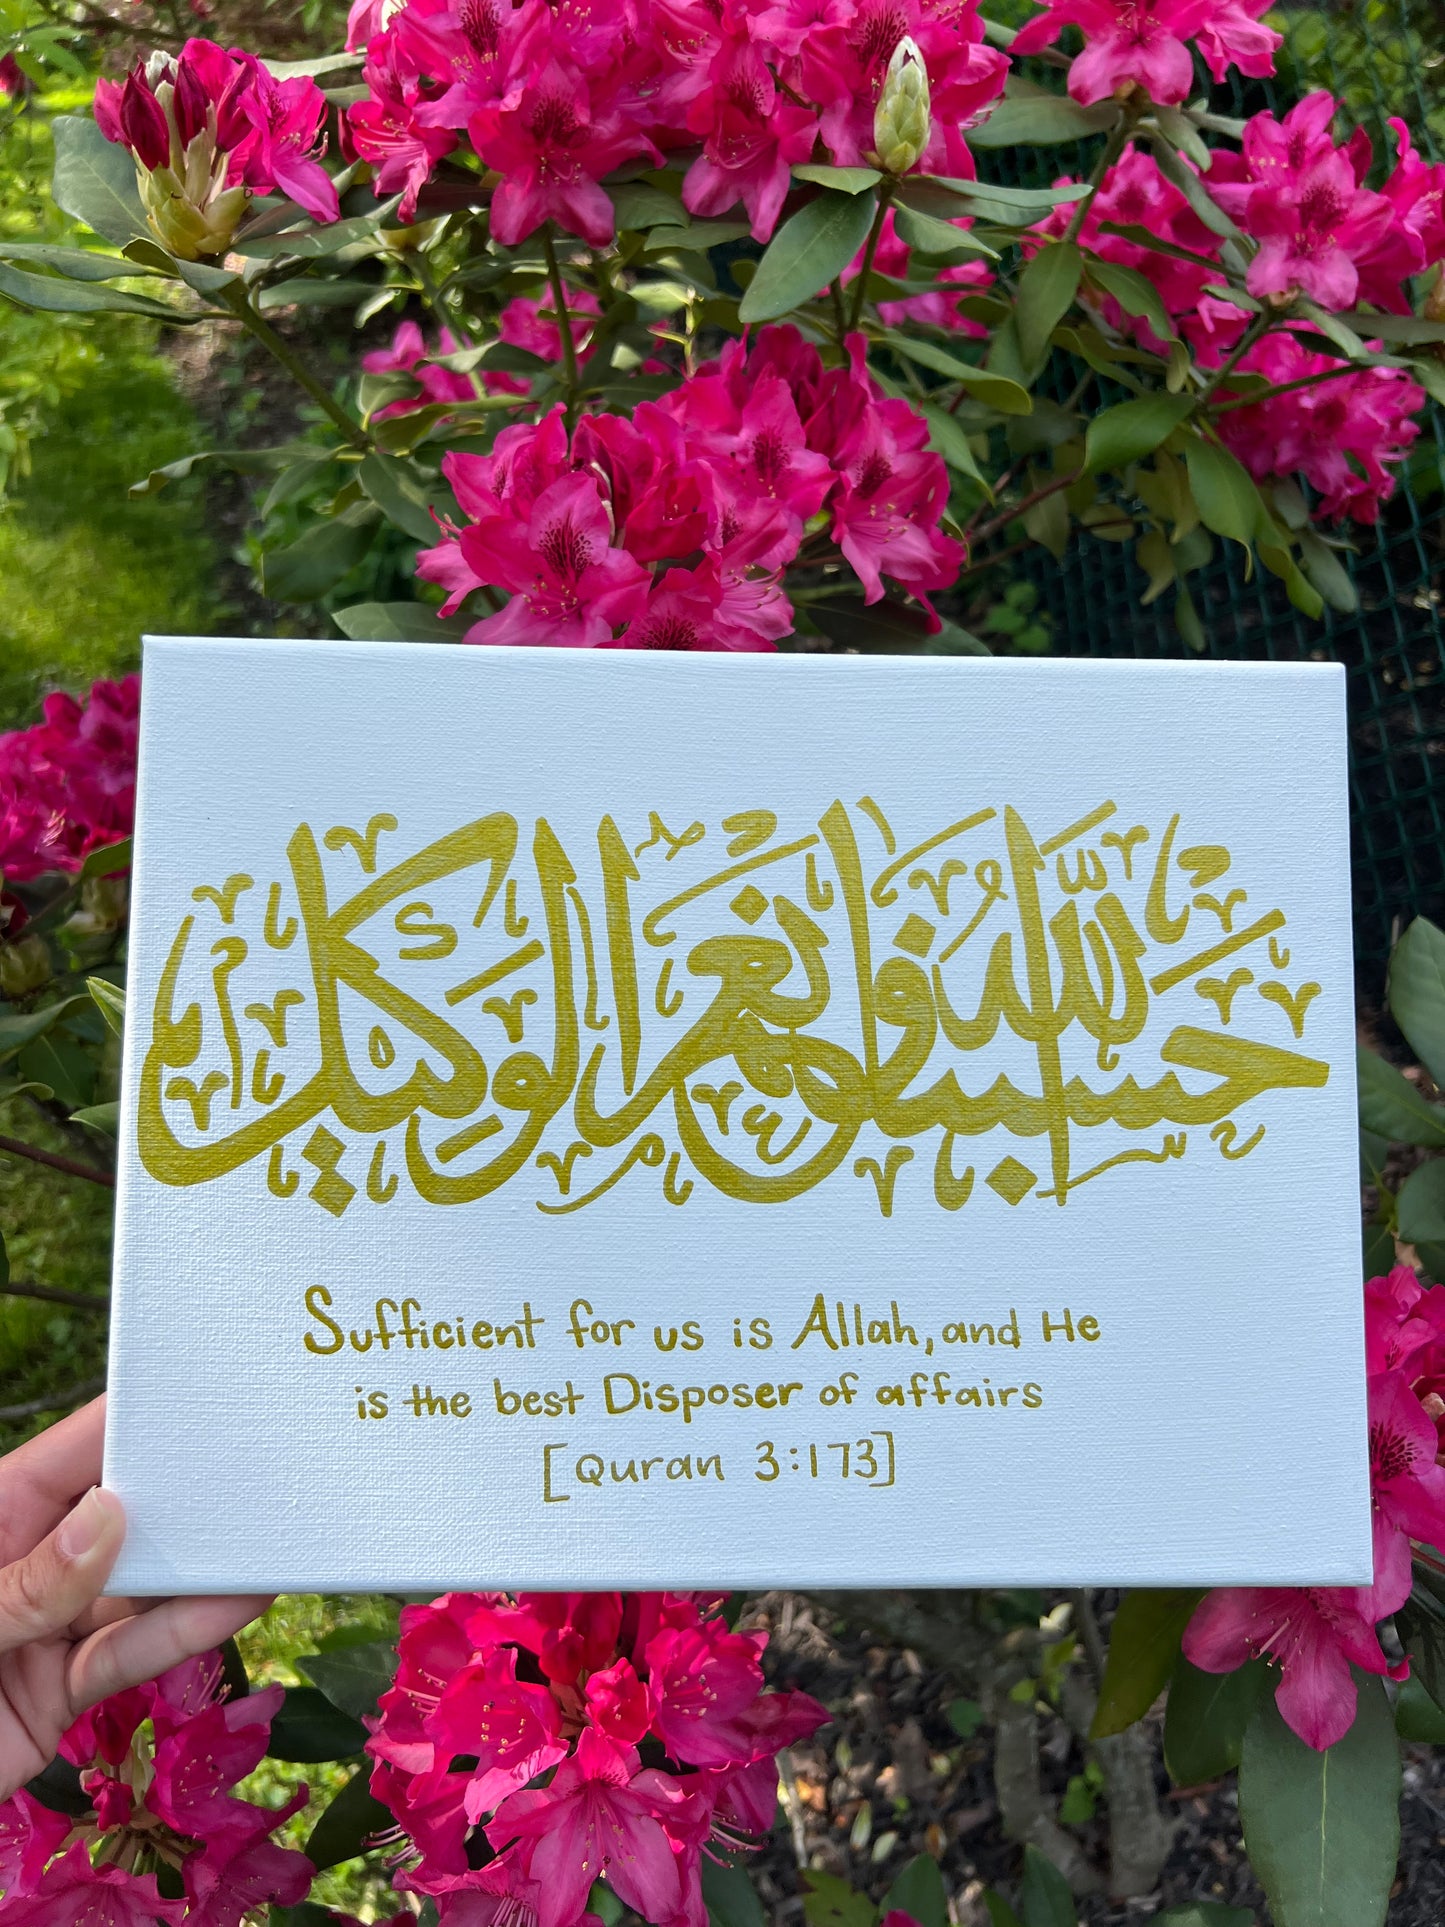 حسبنا الله ونعم الوكيل
Sufficient for us is Allah, and He
is the best Disposer of affairs
[Quran 3:173]